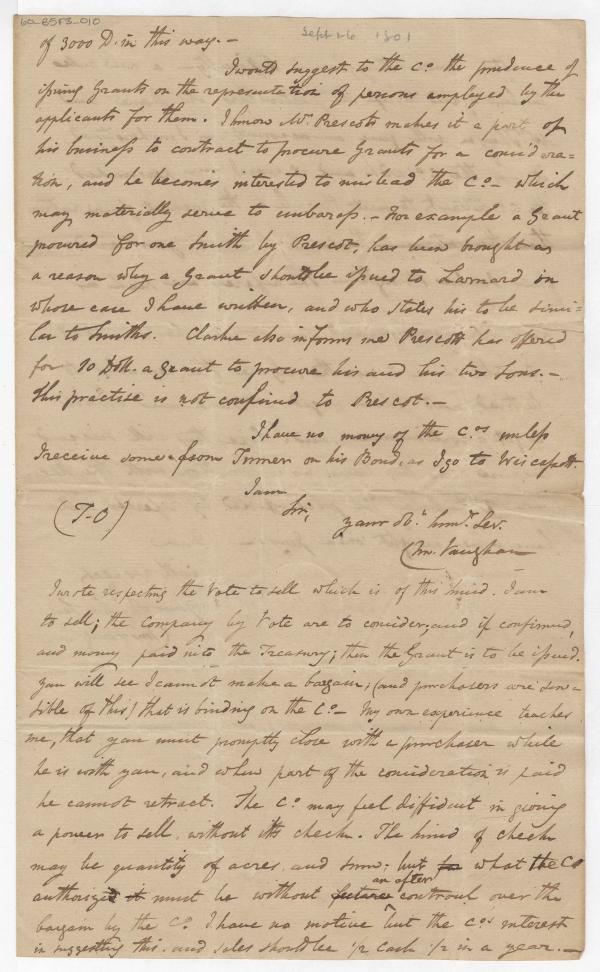 60-B5F3-010
Sept 26 1801
of 3000 D. in this way. –
I would suggest to the Co. the prudence of
issuing Grants on the representation of persons employed by the
applicants for them. I know Mr Prescott makes it a part of
his business to contract to procure Grants for a consid'era=
tion, and he becomes interested to mislead the Co – which
may materially serve to embarass. – For example a Grant
procured for one Smith by Prescot, has been brought as
a reason why a Grant should be issued to Larnard in
whose case I have written, and who states his to be simi=
lar to Smiths. Clarke also informs me Prescott has offered
for 10 Doll. a Grant to procure his and his two Sons. –
This practise is not confined to Prescot. –
I have no money of the Cos unless
I receive some from Turner on his Bond, as I go to Wiscassett.
I am
Sir,
(T-O)
your obt humr Ser.
Chs. Vaughan
I wrote respecting the Vote to sell which is of this kind. I am
to sell; the company by Vote are to consider; and if confirmed,
and money paid into the Treasury; then the Grant is to be issued.
you will see I cannot make a bargain; (and purchasers are sen=
sible of this) that is binding on the Co – My own experience teaches
me, that you must promptly close with a purchaser while
he is with you, and when part of the consideration is paid
he cannot retract. The Co may feel diffident in giving
a power to sell, without its check. The kind of check
may be quantity of acres, and sum; but what the Co
authorized it must be without future an after controul over the
bargain by the Co. I have no motive but the Cos interest
in suggesting this. and sales should be 1/2 Cash 1/2 in a year. –